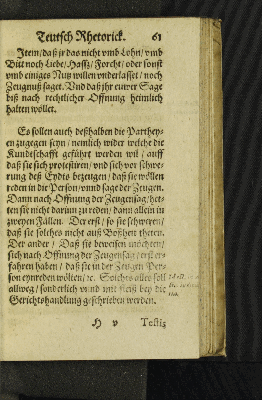 Teutsch Rhetorick. 61
Item/ daß jr das nicht vmb Lohn/ vmb
Bitt noch Liebe/ Hassz/ Forcht/ oder sonst
vmb einiges Nutz willen vnderlasset/ noch
Zeugnuß saget. Vnd daß jhr euwer Sage
biß nach rechtlicher Offnung heimlich
halten wöllet.
Es sollen auch deßhalben die Partheyen
en zugegen seyn/ nemlich wider welche die
Kundtschafft geführt werden wil/ auff
daß sie sich protestiren/ vnd sich vor schwe-
rung deß Eydts bezeugen/ daß sie wöllen
reden in die Person/ vnnd sage der Zeugen.
Dann nach Offnung der Zeugensag/ het-
ten sie nicht darinn zu reden/ dann allein in
zweyen Fällen. Der erst/ so sie schweren/
daß sie solches nicht auß Boßheit theten.
Der ander/ Daß sie beweisen möchten/
sich nach Offnung der Zeugensag/ erst er-
fahren haben/ daß sie in der Zeugen Per-
son eynreden wölten/ ꝛc. Solches alles soll
allweg/ sonderlich vnnd mit fleiß bey die
Gerichtshandlung geschrieben werden.
H v Testis